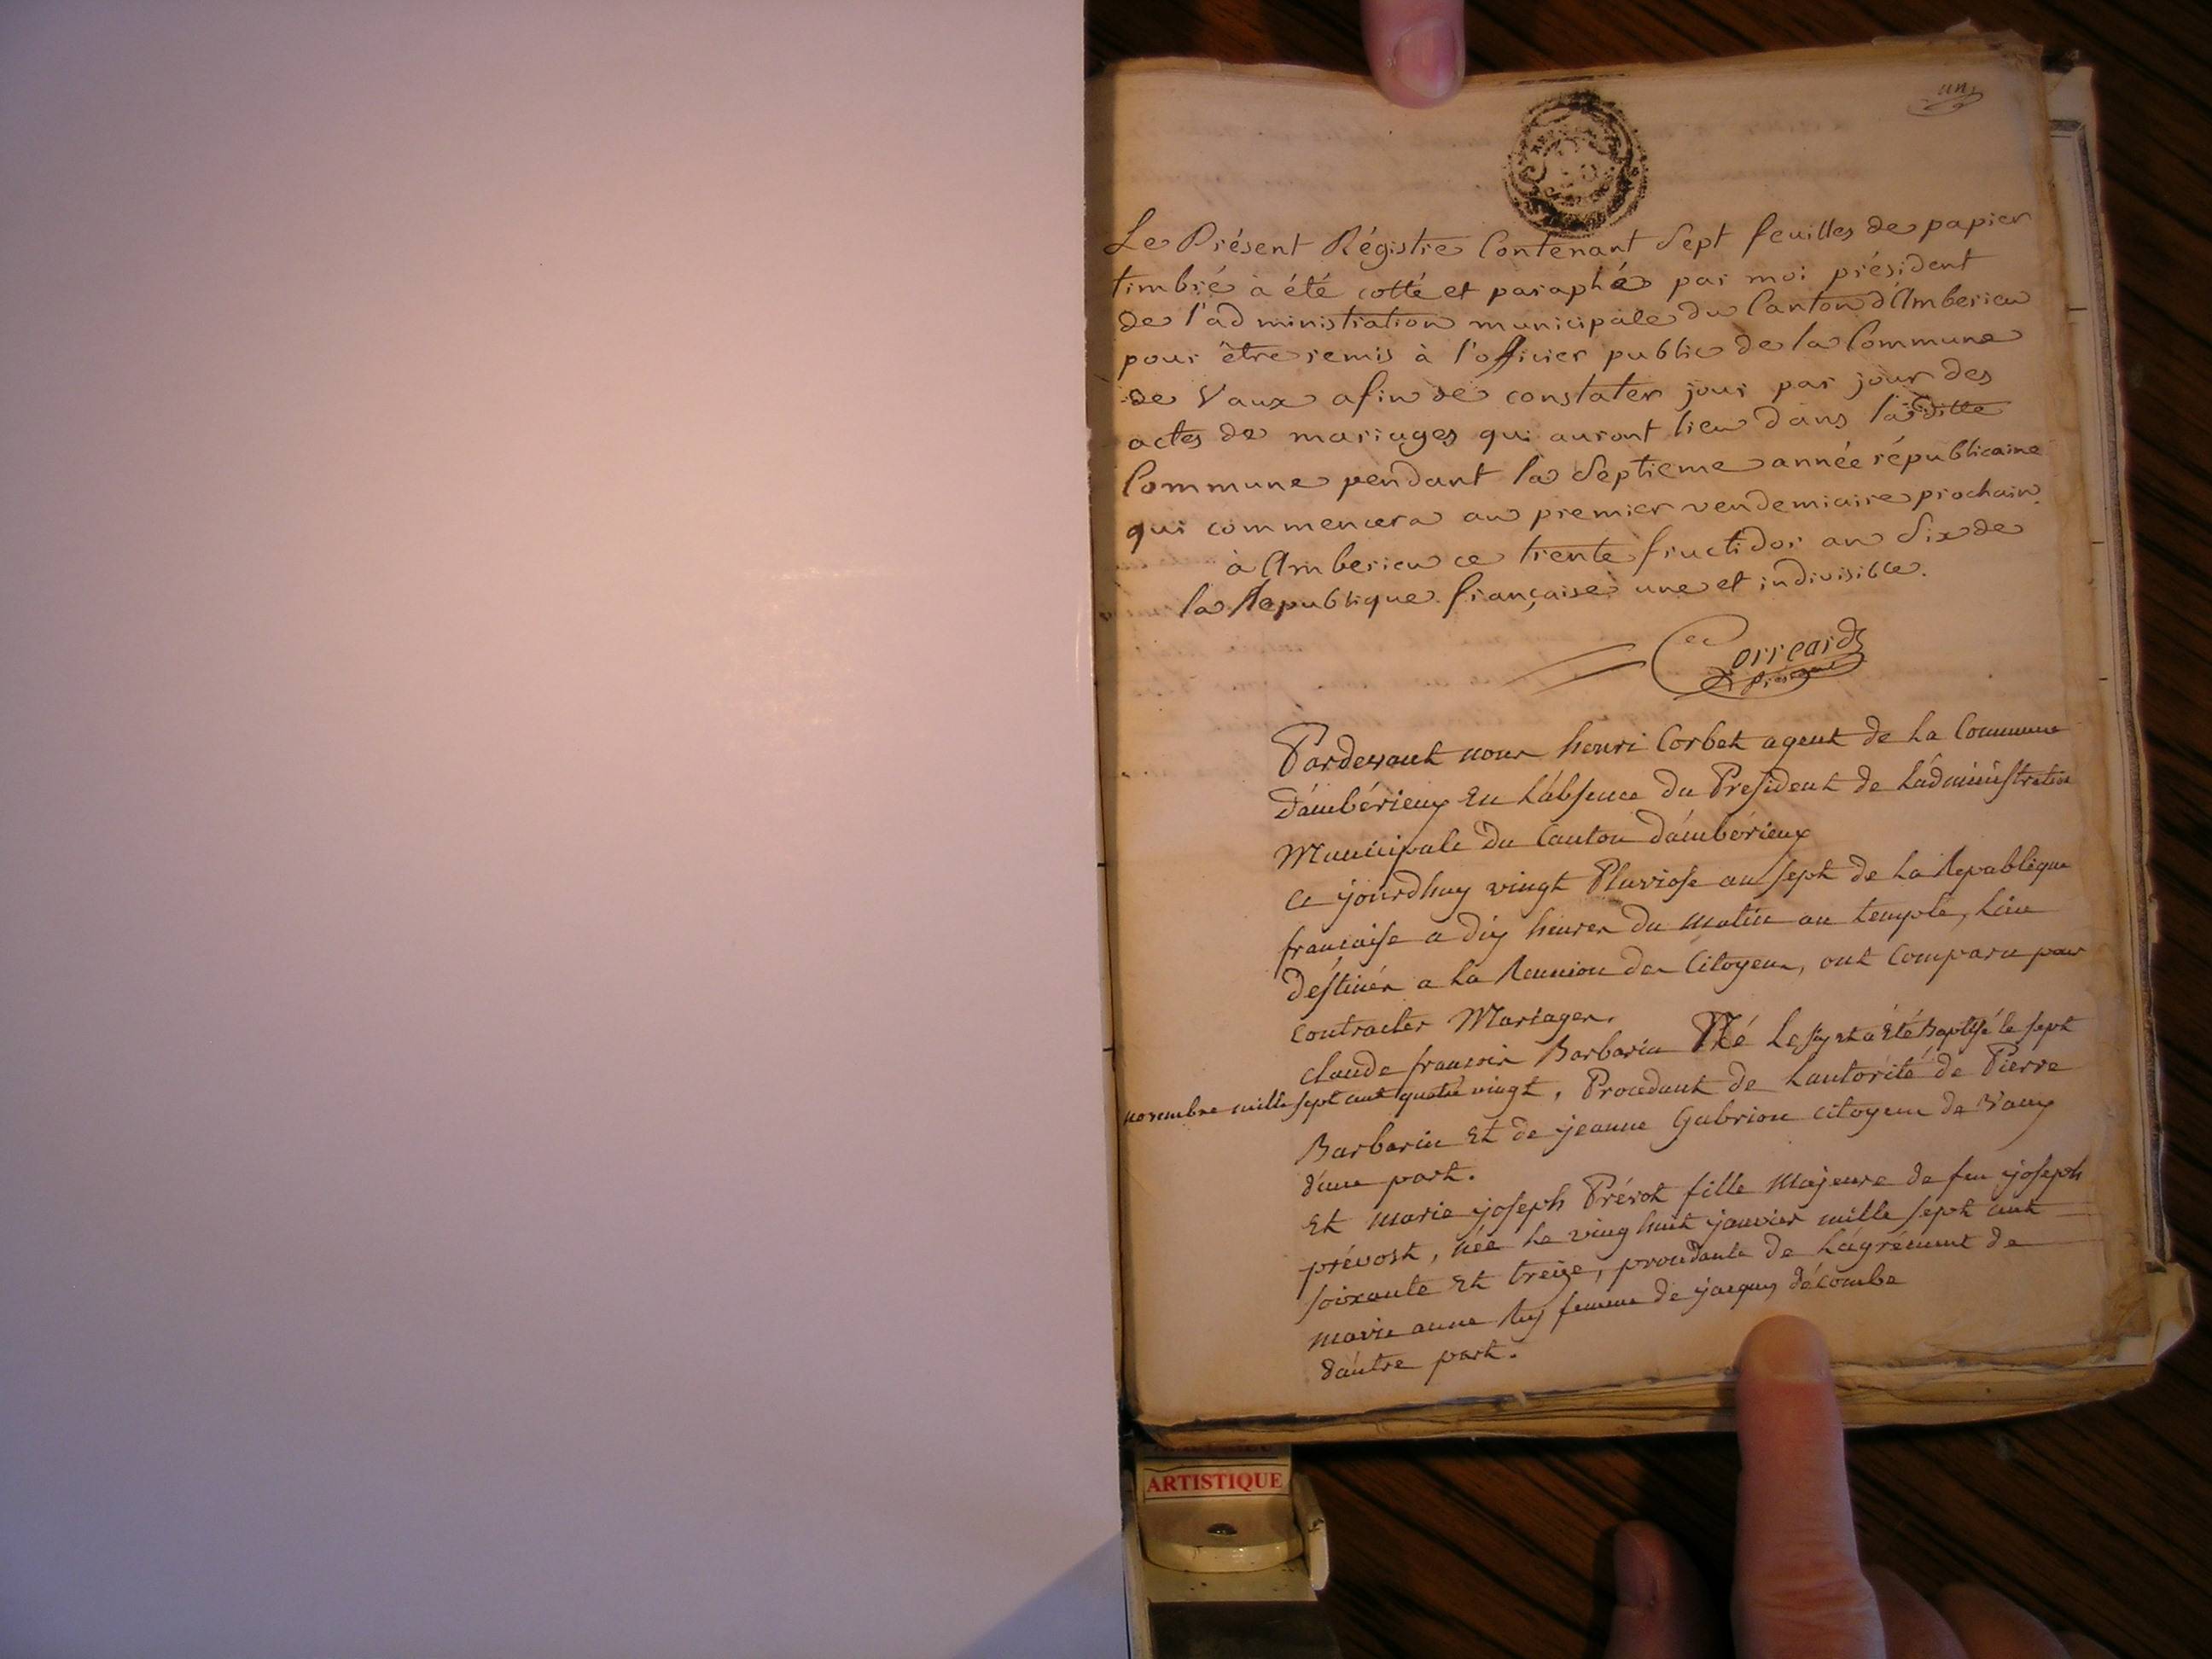 un
Le Présent Régistre Contenant Sept feuilles de papier
timbré à été cotté et paraphé par moi président
de l'administration municipale du Canton d'Amberieu
pour être remis à l'officier public de la Commune
de Vaux afin de constater jour par jour des
actes de mariages qui auront lieu dans laditte
Commune pendant la Septieme année républicaine
qui commencera au premier vendemiaire prochain.
à Amberieu ce trente fructidor an Six de
la Republique française une et indivisible.
Correard
président
Pardevant nous henri Corbet agent de la Commune
d'ambérieux En l'absence du President de L'administration
Municipale du Canton d'ambérieux
Ce jourd'huy vingt Pluviose an sept de La Republique
francaise a dix heures du matin au temple, Lieu
destinés a la Reunion des Citoyens, ont Comparu pour
Contracter Mariages.
claude francois Barbarin Né Le six et a Eté baptisé le sept
novembre mille sept cent quatre vingt, Procedant de Lautorité de Pierre
Barbarin Et de jeanne Gabrion citoyens de Vaux
d'une part.
Et marie joseph Prévot fille Majeure de feu joseph
prévost, née le vingt huit janvier mille sept cent
soixante Et treize, procedante de L'agrément de
marie anne Rey femme de jacques décombe
d'autre part.
ARTISTIQUE